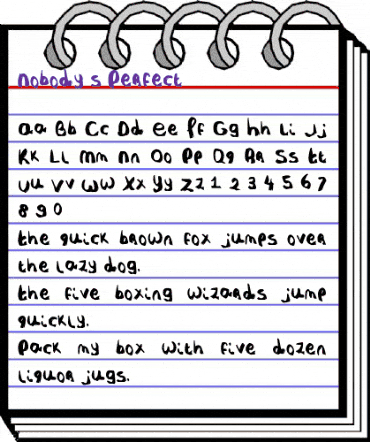 nobody s Perfect
aa Bb Cc Dd ee Ff Gg hh Li Jj
Kk LL mm nn Oo Pp Qq RR Ss tt
uu vv ww Xx Yy zz 1 2 3 4 5 6 7
8 9 0
the quick brown fox jumps over
the Lazy dog.
the five boxing wizards jump
quickly.
Pack my box with five dozen
Liquor jugs.